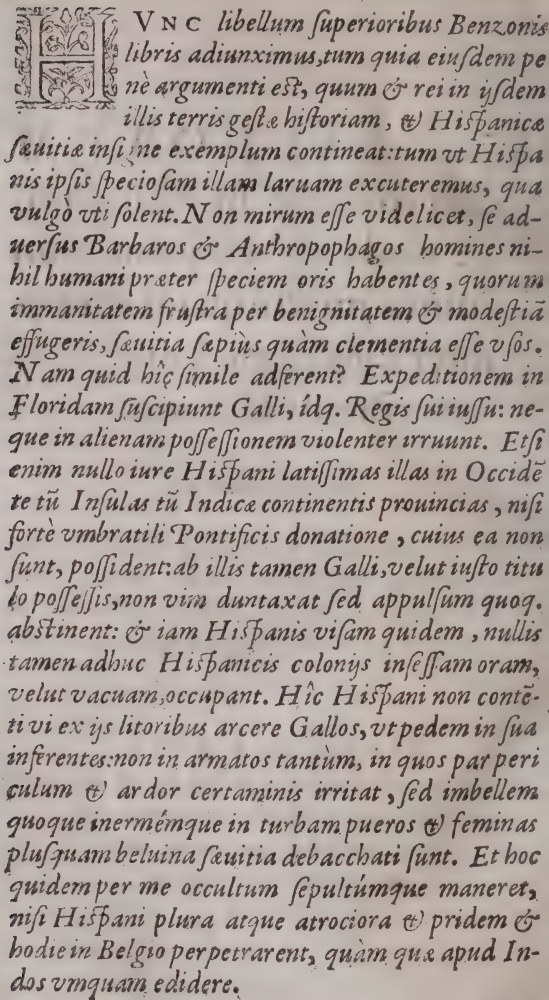 HVNC libellum ſuperioribus Benzonis
libris adiunximus, tum quia eiuſdem pe
nè argumenti eſt, quum & rei in ijſdem
illis terris geſtæ hiſtoriam, & Hiſpanicæ
ſæuitiæ inſigne exemplum contineat: tum vt Hiſpa
nis ipſis ſpecioſam illam laruam excuteremus, qua
vulgò vti ſolent. Non mirum eſſe videlicet, ſe ad-
uerſus Barbaros & Anthropophagos homines ni-
hil humani præter ſpeciem oris habentes, quorum
immanitatem fruſtra per benignitatem & modeſtiã
effugeris, ſæuitia ſæpiùs quàm clementia eſſe vſos.
Nam quid hîc ſimile adferent? Expeditionem in
Floridam ſuſcipiunt Galli, ídq. Regis ſui iuſſu: ne-
que in alienam poſſeſſionem violenter irruunt. Etſi
enim nullo iure Hiſpani latiſſimas illas in Occidẽ
te tũ Inſulas tũ Indicæ continentis prouincias, niſi
fortè vmbratili Pontificis donatione, cuius ea non
ſunt, poſſident: ab illis tamen Galli, velut iuſto titu
lo poſſeſſis, non vim duntaxat ſed appulſum quoq.
abſtinent: & iam Hiſpanis viſam quidem, nullis
tamen adhuc Hiſpanicis colonijs inſeſſam oram,
velut vacuam, occupant. Hîc Hiſpani non contẽ-
ti vi ex ijs litoribus arcere Gallos, vt pedem in ſua
inferentes: non in armatos tantùm, in quos par peri
culum & ardor certaminis irritat, ſed imbellem
quoque inermémque in turbam pueros & feminas
pluſquam beluina ſæuitia debacchati ſunt. Et hoc
quidem per me occultum ſepultúmque maneret,
niſi Hiſpani plura atque atrociora & pridem &
hodie in Belgio perpetrarent, quàm quæ apud In-
dos vmquam edidere.